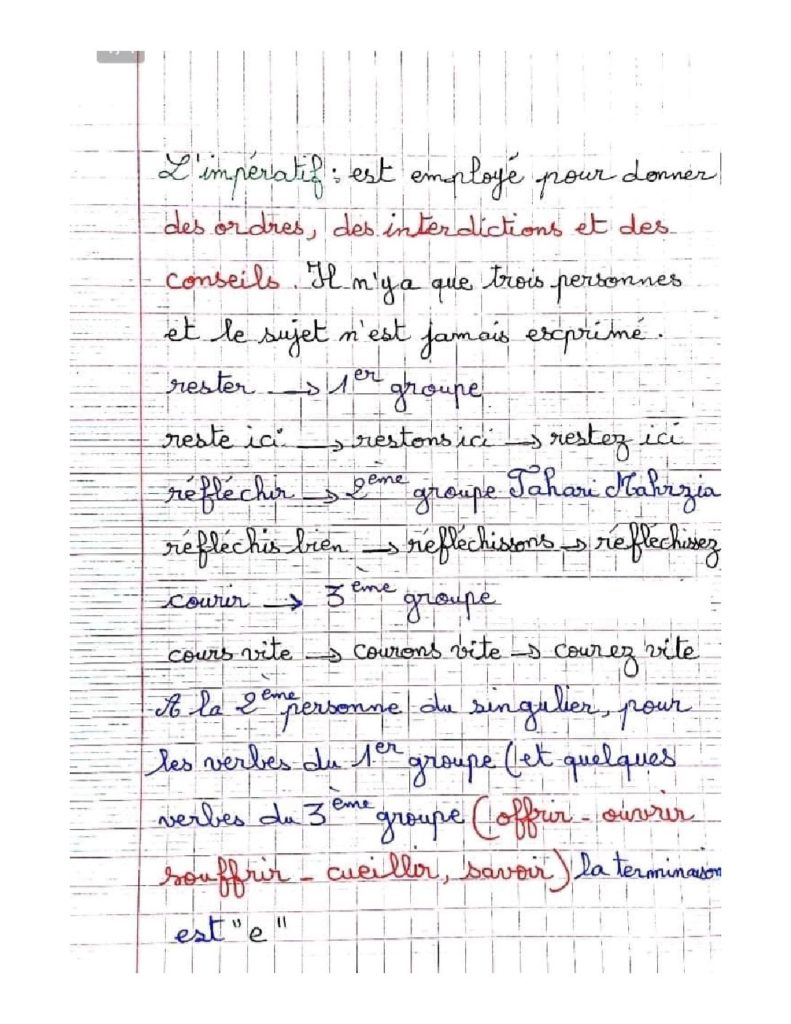 L'impératif : est employé pour donner
des ordres, des interdictions et des
conseils. Il n'ya que trois personnes
et le sujet n'est jamais exprimé.
rester → 1er groupe
reste ici → restons ici → restez ici
réfléchir → 2ème groupe Tahari Mahrzia
réfléchis bien → réfléchissons → réfléchissez
courir → 3ème groupe
cours vite → courons vite → courez vite
A la 2ème personne du singulier, pour
les verbes du 1er groupe (et quelques
verbes du 3ème groupe (offrir - ouvrir
souffrir - cueillir, savoir) la terminaison
est "e"